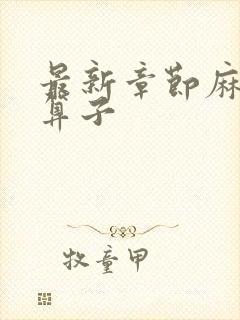 最新章节麻
算子
牧童甲